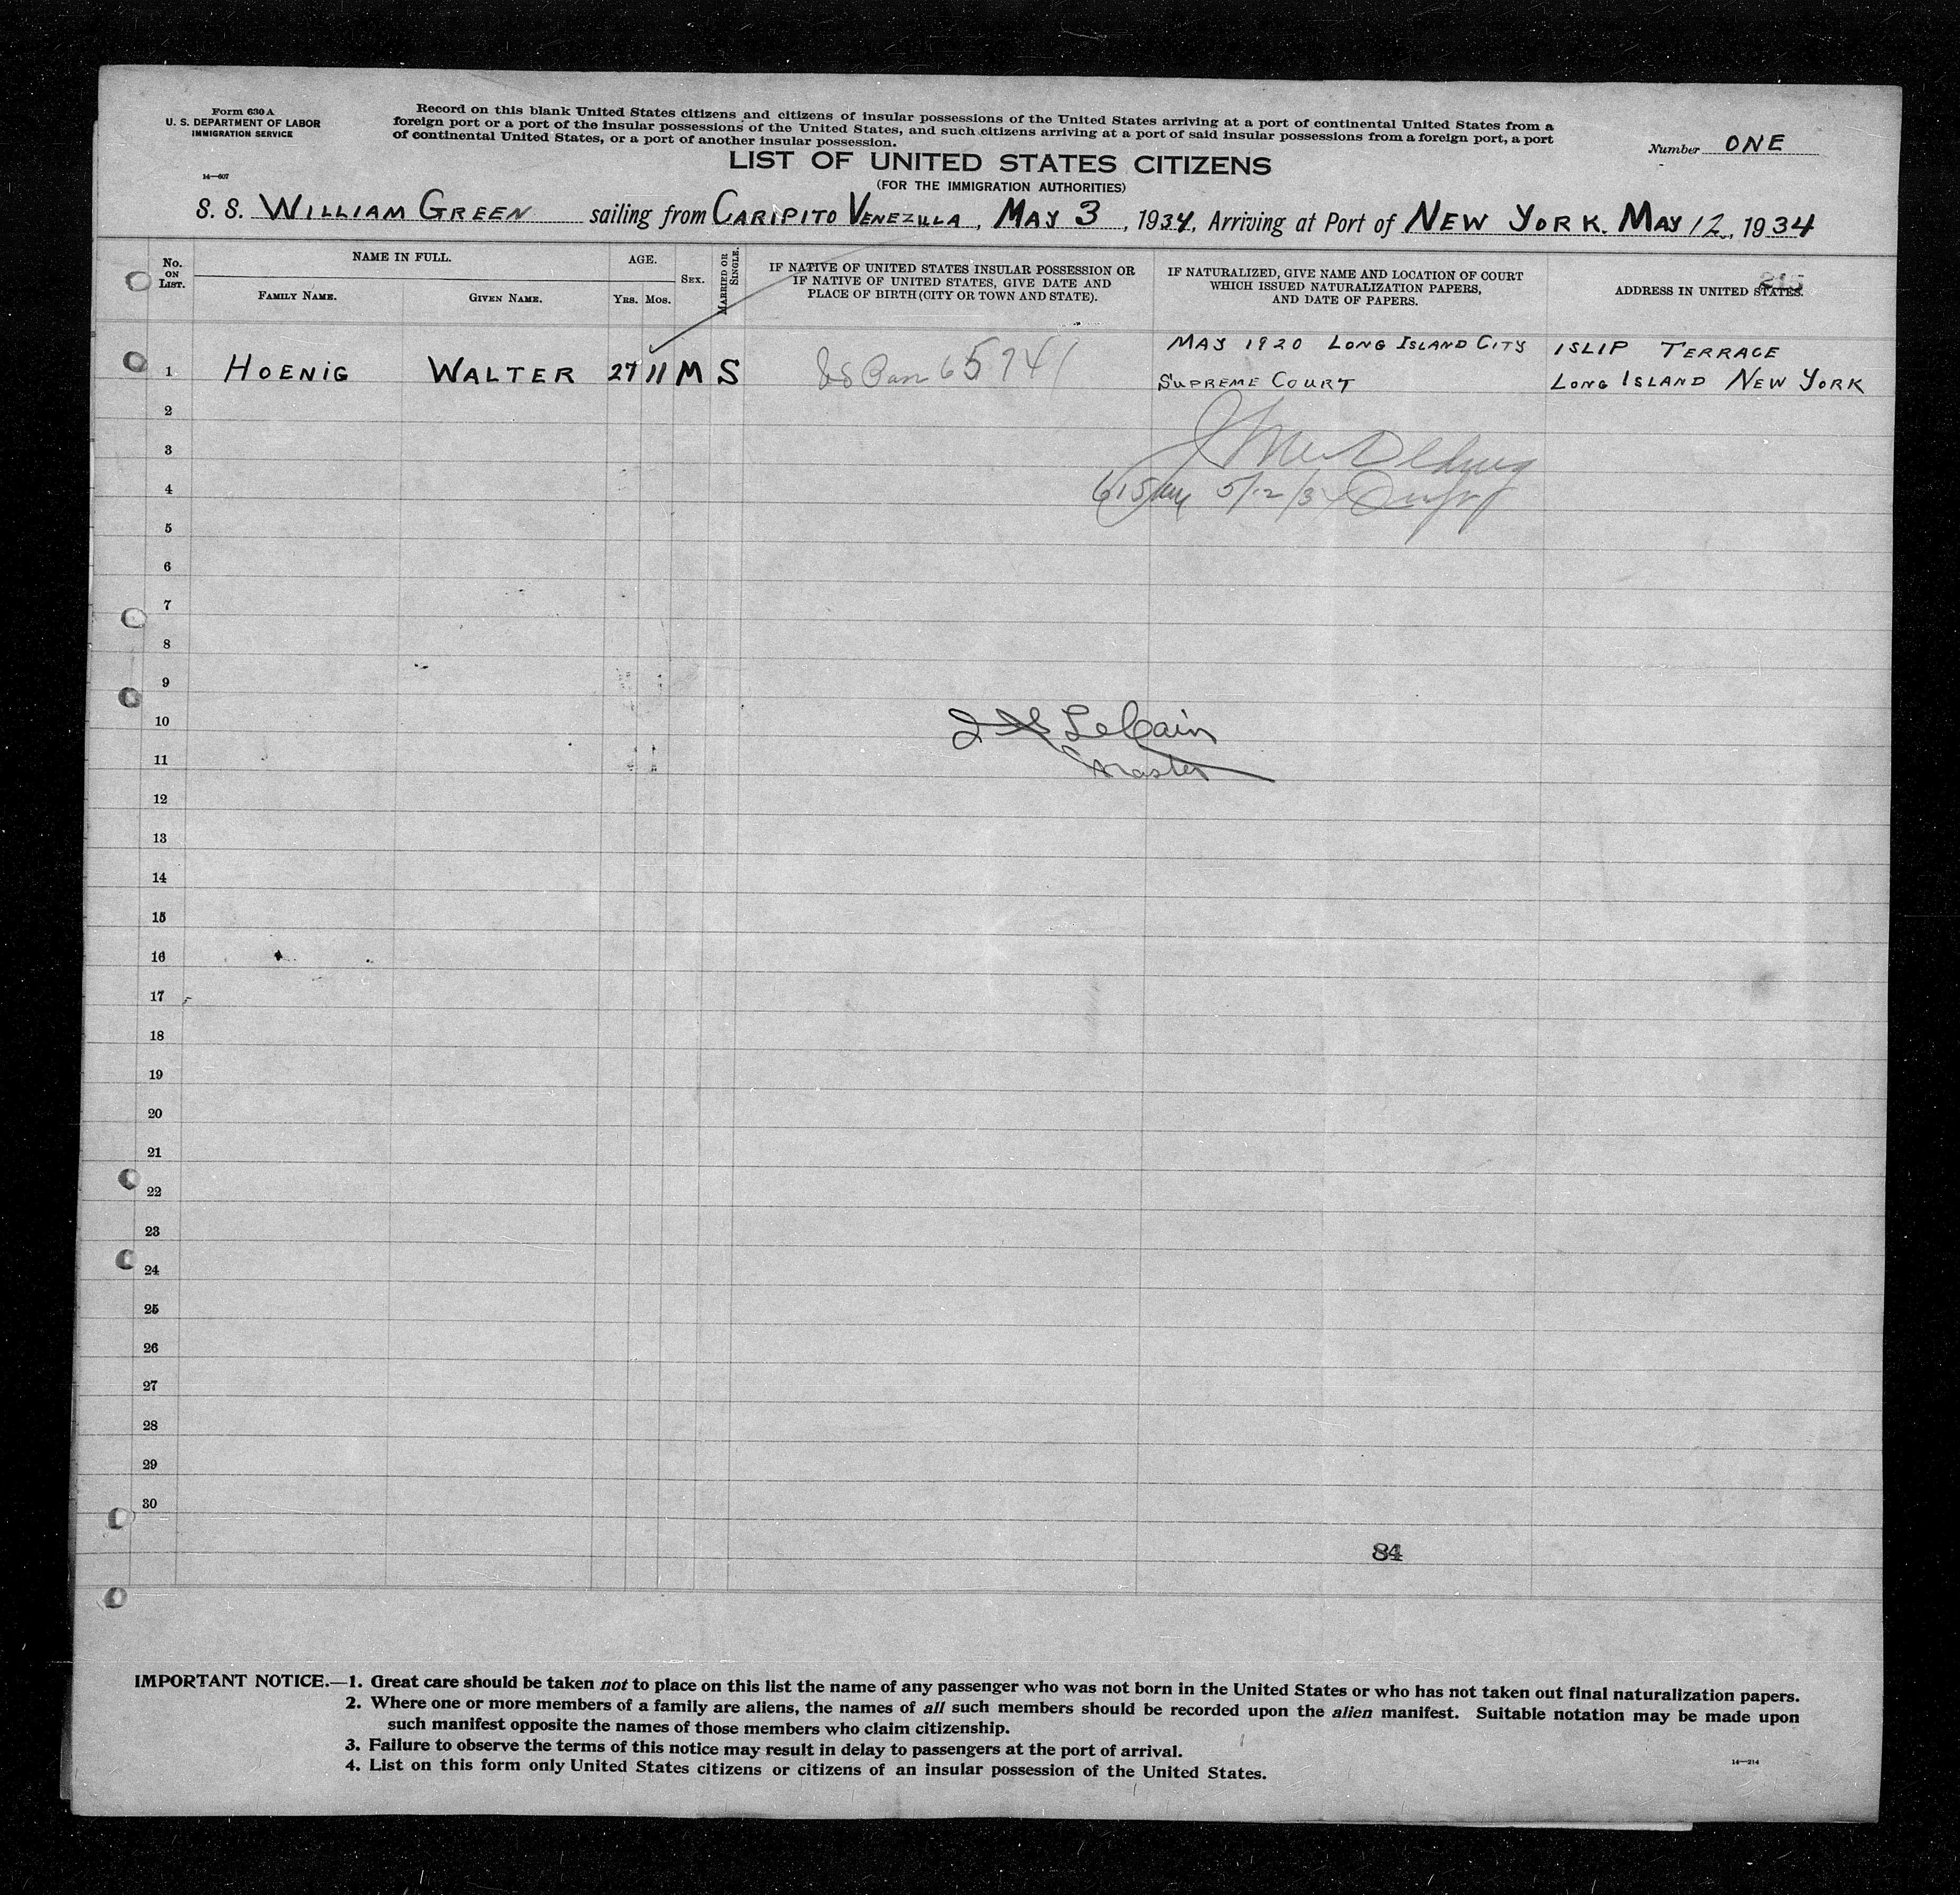 Form 630 A
U. S. DEPARTMENT OF LABOR
IMMIGRATION SERVICE
14—607
Record on this blank United States citizens and citizens of insular possessions of the United States arriving at a port of continental United States from a
foreign port or a port of the insular possessions of the United States, and such citizens arriving at a port of said insular possessions from a foreign port, a port
of continental United States, or a port of another insular possession.
LIST OF UNITED STATES CITIZENS
(FOR THE IMMIGRATION AUTHORITIES)
Number ONE
S. S. WILLIAM GREEN sailing from CARIPITO VENEZULLA, MAY 3, 1934, Arriving at Port of NEW YORK. MAY 12, 1934
No. ON LIST.
NAME IN FULL.
FAMILY NAME.
GIVEN NAME.
AGE.
YRS. MOS.
SEX.
MARRIED OR SINGLE.
IF NATIVE OF UNITED STATES INSULAR POSSESSION OR
IF NATIVE OF UNITED STATES, GIVE DATE AND
PLACE OF BIRTH (CITY OR TOWN AND STATE).
IF NATURALIZED, GIVE NAME AND LOCATION OF COURT
WHICH ISSUED NATURALIZATION PAPERS,
AND DATE OF PAPERS.
215
ADDRESS IN UNITED STATES.
1 HOENIG WALTER 27 11 M S US Pass 65741 MAY 1920 LONG ISLAND CITY ISLIP TERRACE
SUPREME COURT LONG ISLAND NEW YORK
2
3
4
5/12/34
5
6
7
8
9
10
LeCain
11
Master
12
13
14
15
16
17
18
19
20
21
22
23
24
25
26
27
28
29
30
84
IMPORTANT NOTICE.—1. Great care should be taken not to place on this list the name of any passenger who was not born in the United States or who has not taken out final naturalization papers.
2. Where one or more members of a family are aliens, the names of all such members should be recorded upon the alien manifest. Suitable notation may be made upon
such manifest opposite the names of those members who claim citizenship.
3. Failure to observe the terms of this notice may result in delay to passengers at the port of arrival.
4. List on this form only United States citizens or citizens of an insular possession of the United States.
14—214